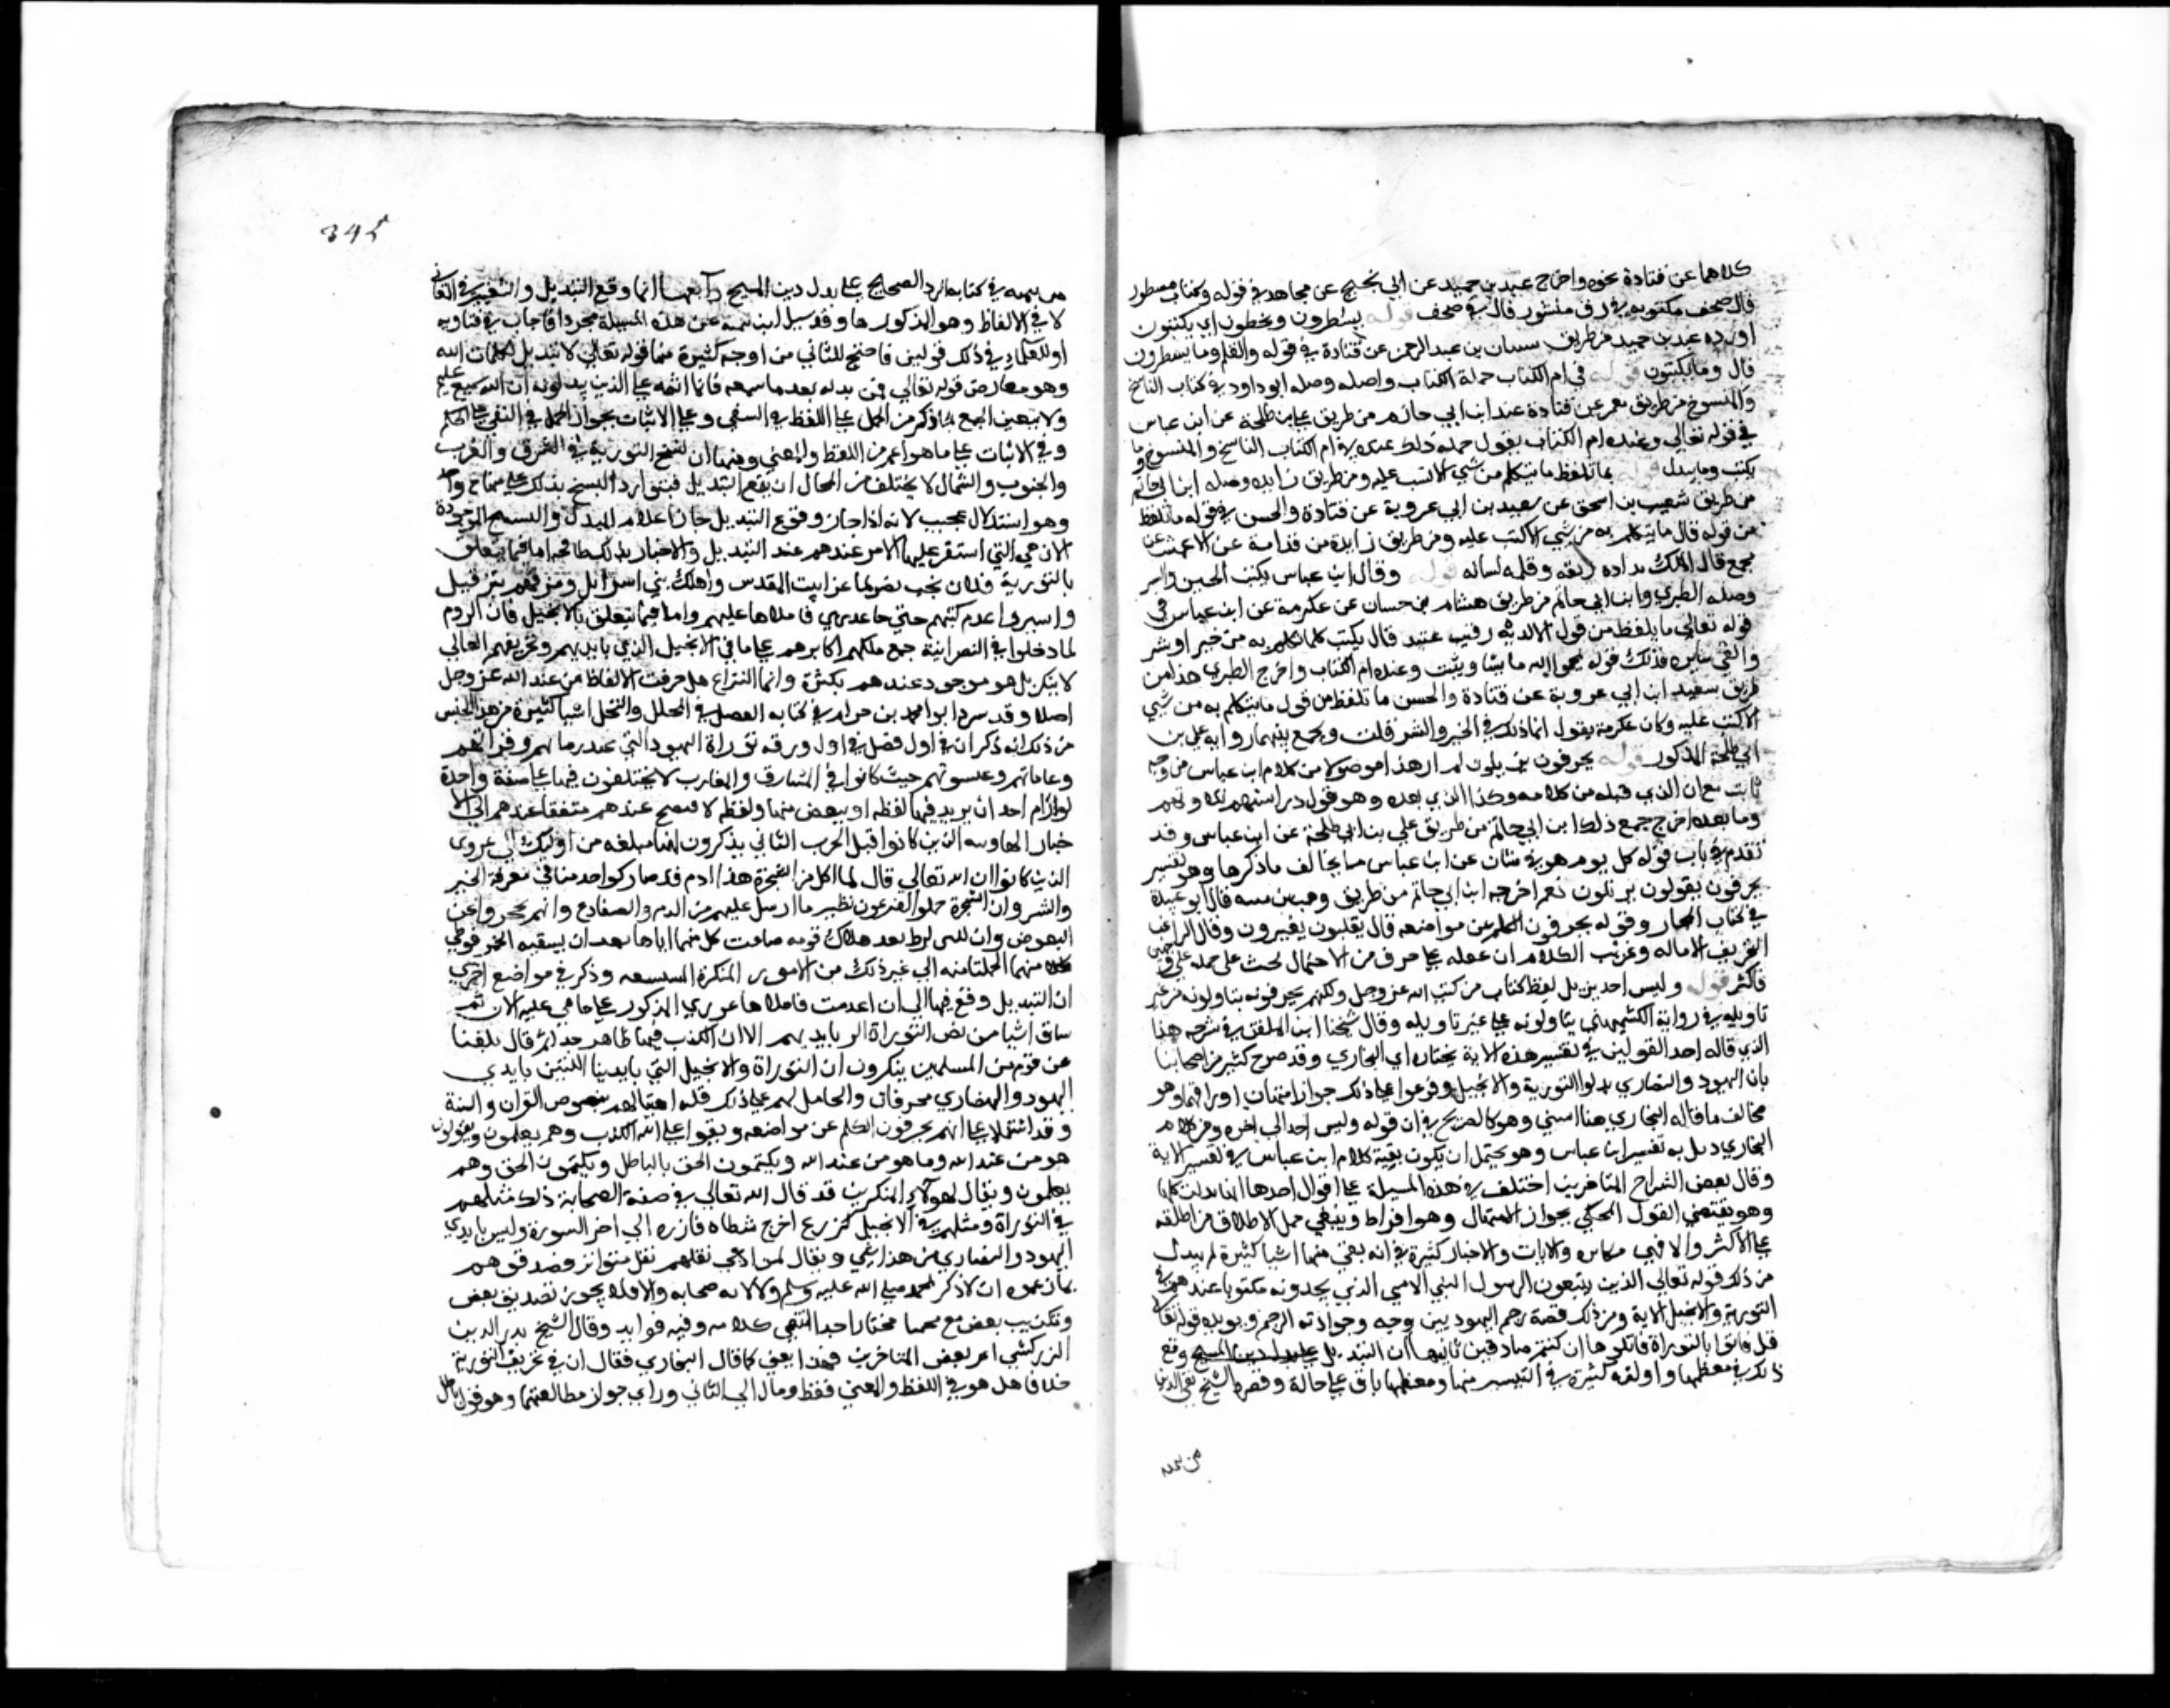 كلاهما عن قتادة نحوه واخرج عبد بن حميد عن ابي نجيح عن مجاهد في قوله وكتاب مسطور
قال صحف مكتوبه في رق منشور قال في صحف قوله يسطرون ويخطون اي يكتبون
اورده عبد بن حميد من طريق سنان بن عبد الرحمن عن قتادة في قوله والقلم وما يسطرون
قال وما يكتبون قوله في ام الكتاب جملة الكتاب واصله وصله ابو داود في كتاب الناسخ
والمنسوخ من طريق معمر عن قتادة عند ابن ابي حاتم من طريق علي بن طلحة عن ابن عباس
في قوله تعالى وعنده ام الكتاب يقول جملة ذلك عنده في ام الكتاب الناسخ والمنسوخ وما
يكتب وما يبدل قوله ما تلفظ ما يتكلم من شي الا كتب عليه ومن طريق زايده وصله ابن ابي حاتم
من طريق شعيب بن اسحق عن سعيد بن ابي عروبة عن قتادة والحسن في قوله ما تلفظ
من قوله قال ما يتكلم به من شي الا كتب عليه ومن طريق زايدة من قدامة عن الاعمش عن
مجمع قال الملك مداده ريقه وقلمه لسانه قوله وقال ابن عباس يكتب الخير والشر
وصله الطبري وابن ابي حاتم من طريق هشام بن حسان عن عكرمة عن ابن عباس في
قوله تعالى ما يلفظ من قول الا لديه رقيب عتيد قال يكتب كلما تكلم به من خير او شر
والقي سايره فذلك قوله يمحوا الله ما يشا ويثبت وعنده ام الكتاب واخرج الطبري هذا من
طريق سعيد ابن ابي عروبة عن قتادة والحسن ما تلفظ من قول ما يتكلم به من شي
الا كتب عليه وكان عكرمة يقول انما ذلك في الخير والشر قلت ويجمع بينهما رواية علي بن
ابي طلحة المذكور قوله يحرفون يزيلون لم ار هذا موصولا من كلام ابن عباس من وجه
ثابت مع ان الذي قبله من كلامه وكذا الذي بعده وهو قول دراستهم تلاوتهم
وما بعده اخرج جميع ذلك ابن ابي حاتم من طريق علي بن ابي طلحة عن ابن عباس وقد
تقدم في باب قوله كل يوم هو في شان عن ابن عباس ما يخالف ما ذكرها وهو تفسير
يحرفون بقولون يزيلون نعم اخرجه ابن ابي حاتم من طريق وهب بن منبه قال ابو عبيدة
في كتاب المجاز وقوله يحرفون الكلم عن مواضعه قال يقلبون يغيرون وقال الراغب
التحريف الاماله وتحريف الكلام ان تجعله على حرف من الاحتمال بحيث يحمله على وجهين
فاكثر قوله وليس احد يزيل لفظ كتاب من كتب الله عز وجل ولكنهم يحرفونه يتاولونه من غير
تاويله في رواية الكشميهني يتاولونه على غير تاويله وقال شيخنا ابن الملقن في شرحه هذا
الذي قاله احد القولين في تفسير هذه الاية يختاره اي البخاري وقد صرح كثير من اصحابنا
بان اليهود والنصارى بدلوا التورية والانجيل وفرعوا على ذلك جواز امتهان اوراقهما وهو
مخالف ما قاله البخاري هنا انتهى وهو كالصريح في ان قوله وليس احد الى اخره من كلام
البخاري ذيل به تفسير ابن عباس وهو يحتمل ان يكون بقية كلام ابن عباس في تفسير الاية
وقال بعض الشراح المتاخرين اختلف في هذه المسيلة على اقوال احدها انها بدلت كلها
وهو مقتضى القول المحكي بجواز الامتهان وهو افراط وينبغي حمل الاطلاق من اطلقه
على الاكثر والا فهي مكابره والايات والاخبار كثيرة في انه بقي منها اشيا كثيرة لم يبدل
من ذلك قوله تعالى الذين يتبعون الرسول النبي الامي الذي يجدونه مكتوبا عندهم في
التورية والانجيل الاية ومن ذلك قصة رجم اليهوديين وفيه وجود اية الرجم ويويده قوله تعالى
قل فاتوا بالتوراة فاتلوها ان كنتم صادقين ثانيها ان التبديل وقع
ذلك في معظمها وادلته كثيرة في اليسير منها ومعظمها باق على حاله وقصره الشيخ تقي الدين
من تيميه
345
من تيميه في كتابه الرد الصحيح على بدل دين المسيح رابعها انما وقع التبديل والتغيير في المعاني
لا في الالفاظ وهو المذكور ها وقد سيل ابن تيمية عن هذه المسيلة مجردا فاجاب في فتاويه
او للعلماء في ذلك قولين فاحتج للثاني من اوجه كثيرة منها قوله تعالى لا تبديل لكلمات الله
وهو معارض قوله تعالى فمن بدله بعد ما سمعه فانما اثمه على الذين يبدلونه ان الله سميع عليم
ولا يتعين الجمع بما ذكر من الحمل على اللفظ في النفي وعلى الاثبات بجواز الحمل في النفي على الحكم
وفي الاثبات على ما هو اعم من اللفظ والمعنى ومنها ان نسخ التورية في الشرق والغرب
والجنوب والشمال لا يختلف من المحال ان يقع التبديل فيتوارد النسخ بذلك على منهاج واحد
وهو استدلال عجيب لانه اذا جاز وقوع التبديل جاز اعدام المبدل والنسخ الموجودة
الان هي التي استقر عليها الامر عندهم عند التبديل والاخبار بذلك طافحه اما فيما يتعلق
بالتورية فلان بخت نصر لما غزا بيت المقدس واهلك بني اسرايل ومزقهم بين قتيل
واسير واعدم كتبهم حتى جا عزير فاملاها عليهم واما فيما يتعلق بالانجيل فان الروم
لما دخلوا في النصرانية جمع ملكهم اكابرهم على ما في الانجيل الذي بايديهم وتحريفهم المعاني
لا ينكر بل هو موجود عندهم بكثرة وانما النزاع هل حرفت الالفاظ من عند الله عز وجل
اصلا وقد سرد ابو محمد بن حزم في كتابه الفصل في الملل والنحل اشيا كثيرة من هذا الجنس
من ذلك انه ذكر ان في اول فصل في اول ورقة توراة اليهود التي عند ربانيهم وقرايهم
وعاناتهم وعيسويهم حيث كانوا في المشارق والمغارب لا يختلفون فيها على صفة واحدة
لو رام احد ان يزيد فيها لفظه او ينقص منها لفظه لافتضح عندهم متفقا عندهم الى الا
خبار الهارونيه الذين كانوا قبل الخراب الثاني يذكرون انها مبلغه من اوليك الى عزرا
الذين كانوا ان الله تعالى قال لما اكل من الشجرة هذا ادم قد صار كواحد منا في معرفة الخير
والشر وان السحرة عملوا لفرعون نظير ما ارسل عليهم من الدم والصفادع وانهم عجزوا عن
البعوض وان ابنتي لوط بعد هلاك قومه ضاجعت كل منهما اباها بعد ان يسقيه الخمر فوطي
كلا منهما فحملتا منه الى غير ذلك من الامور المنكرة المستبشعه وذكر في مواضع اخرى
ان التبديل وقع فيها الى ان اعدمت فاملاها عزري المذكور على ما هي عليه الان ثم
ساق اشيا من نص التوراة التي بايديهم الان الكذب فيها ظاهر جدا ثم قال بلغنا
عن قوم من المسلمين ينكرون ان التوراة والانجيل التي بايدينا اللتين بايدي
اليهود والنصارى محرفان والحامل لهم على ذلك قلة اهتبالهم بنصوص القران والسنة
وقد اشتملا على انهم يحرفون الكلم عن مواضعه ويقولوا على الله الكذب وهم يعلمون ويقولون
هو من عند الله وما هو من عند الله ويكتمون الحق بالباطل ويكتمون الحق وهم
يعلمون ويقال لهولاء المنكرين قد قال الله تعالى في صفة الصحابة ذلك مثلهم
في التوراة ومثلهم في الانجيل كزرع اخرج شطاه فازره الى اخر السورة وليس بايدي
اليهود والنصارى من هذا شي ويقال لمن ادعى نقلهم نقل متواتر قد صدقوهم
بما زعموه ان لا ذكر لمحمد صلى الله عليه وسلم ولا لاصحابه والا فلا يجوز تصديق بعض
وتكذيب بعض مع مختارا جدا انتهى كلامه وفيه فوايد وقال الشيخ بدر الدين
الزركشي اغتر بعض المتاخرين بهذا يعني بما قال البخاري فقال ان في تحريف التورية
خلافا هل هو في اللفظ والمعنى او في المعنى فقط ومال الى الثاني وراى جواز مطالعتها وهو قول باطل